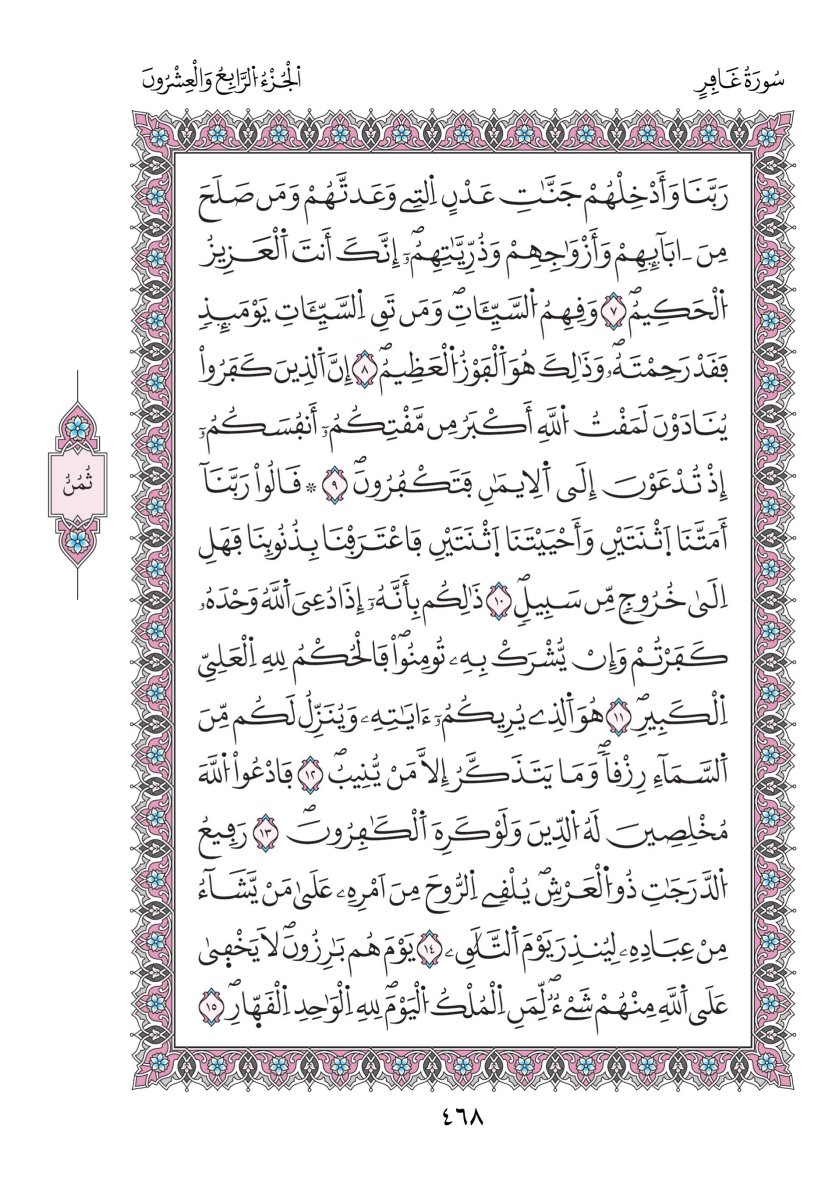 سُورَةُ غَافِرٍ
اَلْجُزْءُ اَلرَّابِعُ وَالْعِشْرُونَ
رَبَّنَا وَأَدْخِلْهُمْ جَنَّٰتِ عَدْنٍ اِلتِے وَعَدتَّهُمْ وَمَن صَلَحَ
مِنَ اٰبَآئِهِمْ وَأَزْوَٰجِهِمْ وَذُرِّيَّٰتِهِمُۥٓۖ إِنَّكَ أَنتَ اَلْعَزِيزُ
اُلْحَكِيمُۖ ٧ وَفِهِمُ اُلسَّيِّـَٔاتِۖ وَمَن تَقِ اِلسَّيِّـَٔاتِ يَوْمَئِذٖ
ڢَفَدْ رَحِمْتَهُۥۖ وَذَٰلِكَ هُوَ اَلْڢَوْزُ اُلْعَظِيمُۖ ٨ إِنَّ اَلذِينَ كَڢَرُواْ
يُنَادَوْنَ لَمَڧْتُ اُللَّهِ أَكْبَرُ مِن مَّڧْتِكُمُۥٓ أَنڢُسَكُمُۥٓ
إِذْ تُدْعَوْنَ إِلَى اَلِايمَٰنِ ڢَتَكْڢُرُونَۖ ٩ ۞ ڧَالُواْ رَبَّنَآ
أَمَتَّنَا اَثْنَتَيْنِ وَأَحْيَيْتَنَا اَثْنَتَيْنِ ڢَاعْتَرَڢْنَا بِذُنُوبِنَا ڢَهَلِ
اِلَىٰ خُرُوجٖ مِّن سَبِيلٖۖ ١٠ ذَٰلِكُم بِأَنَّهُۥٓ إِذَا دُعِىَ اَللَّهُ وَحْدَهُۥ
كَڢَرْتُمْ وَإِنْ يُّشْرَكْ بِهِۦ تُومِنُواْۖ ڢَالْحُكْمُ لِلهِ اِلْعَلِيِّ
اِلْكَبِيرِۖ ١١ هُوَ اَلذِے يُرِيكُمُۥٓ ءَايَٰتِهِۦ وَيُنَزِّلُ لَكُم مِّنَ
اَلسَّمَآءِ رِزْڧاٗۖ وَمَا يَتَذَكَّرُ إِلَّا مَنْ يُّنِيبُۖ ١٢ ڢَادْعُواْ اُللَّهَ
مُخْلِصِينَ لَهُ اُلدِّينَ وَلَوْ كَرِهَ اَلْكَٰڢِرُونَۖ ١٣ رَڢِيعُ
اُلدَّرَجَٰتِ ذُو اُلْعَرْشِۖ يُلْڧِے اِلرُّوحَ مِنَ اَمْرِهِۦ عَلَىٰ مَنْ يَّشَآءُ
مِنْ عِبَادِهِۦ لِيُنذِرَ يَوْمَ اَلتَّلَٰڧِۦ ١٤ يَوْمَ هُم بَٰرِزُونَۖ لَا يَخْڢ۪ىٰ
عَلَى اَللَّهِ مِنْهُمْ شَےْءٞۖ لِّمَنِ اِلْمُلْكُ اُلْيَوْمَۖ لِلهِ اِلْوَٰحِدِ اِلْڧَهّ۪ارِۖ ١٥
ثُمُنُ
٤٦٨